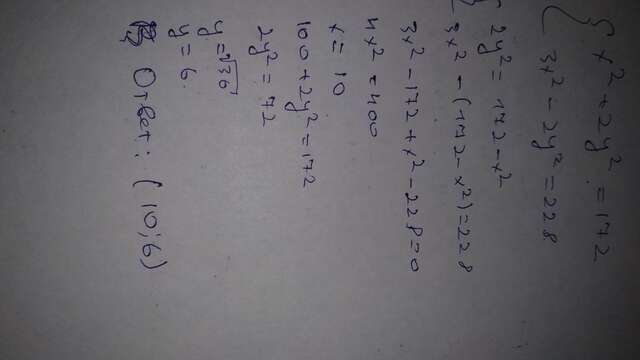 { x² + 2y² = 172
{ 3x² - 2y² = 228
{ 2y² = 172 - x²
{ 3x² - (172 - x²) = 228
3x² - 172 + x² - 228 = 0
4x² = 400
x = 10
100 + 2y² = 172
2y² = 72
y = √36
y = 6
Ответ: (10; 6)